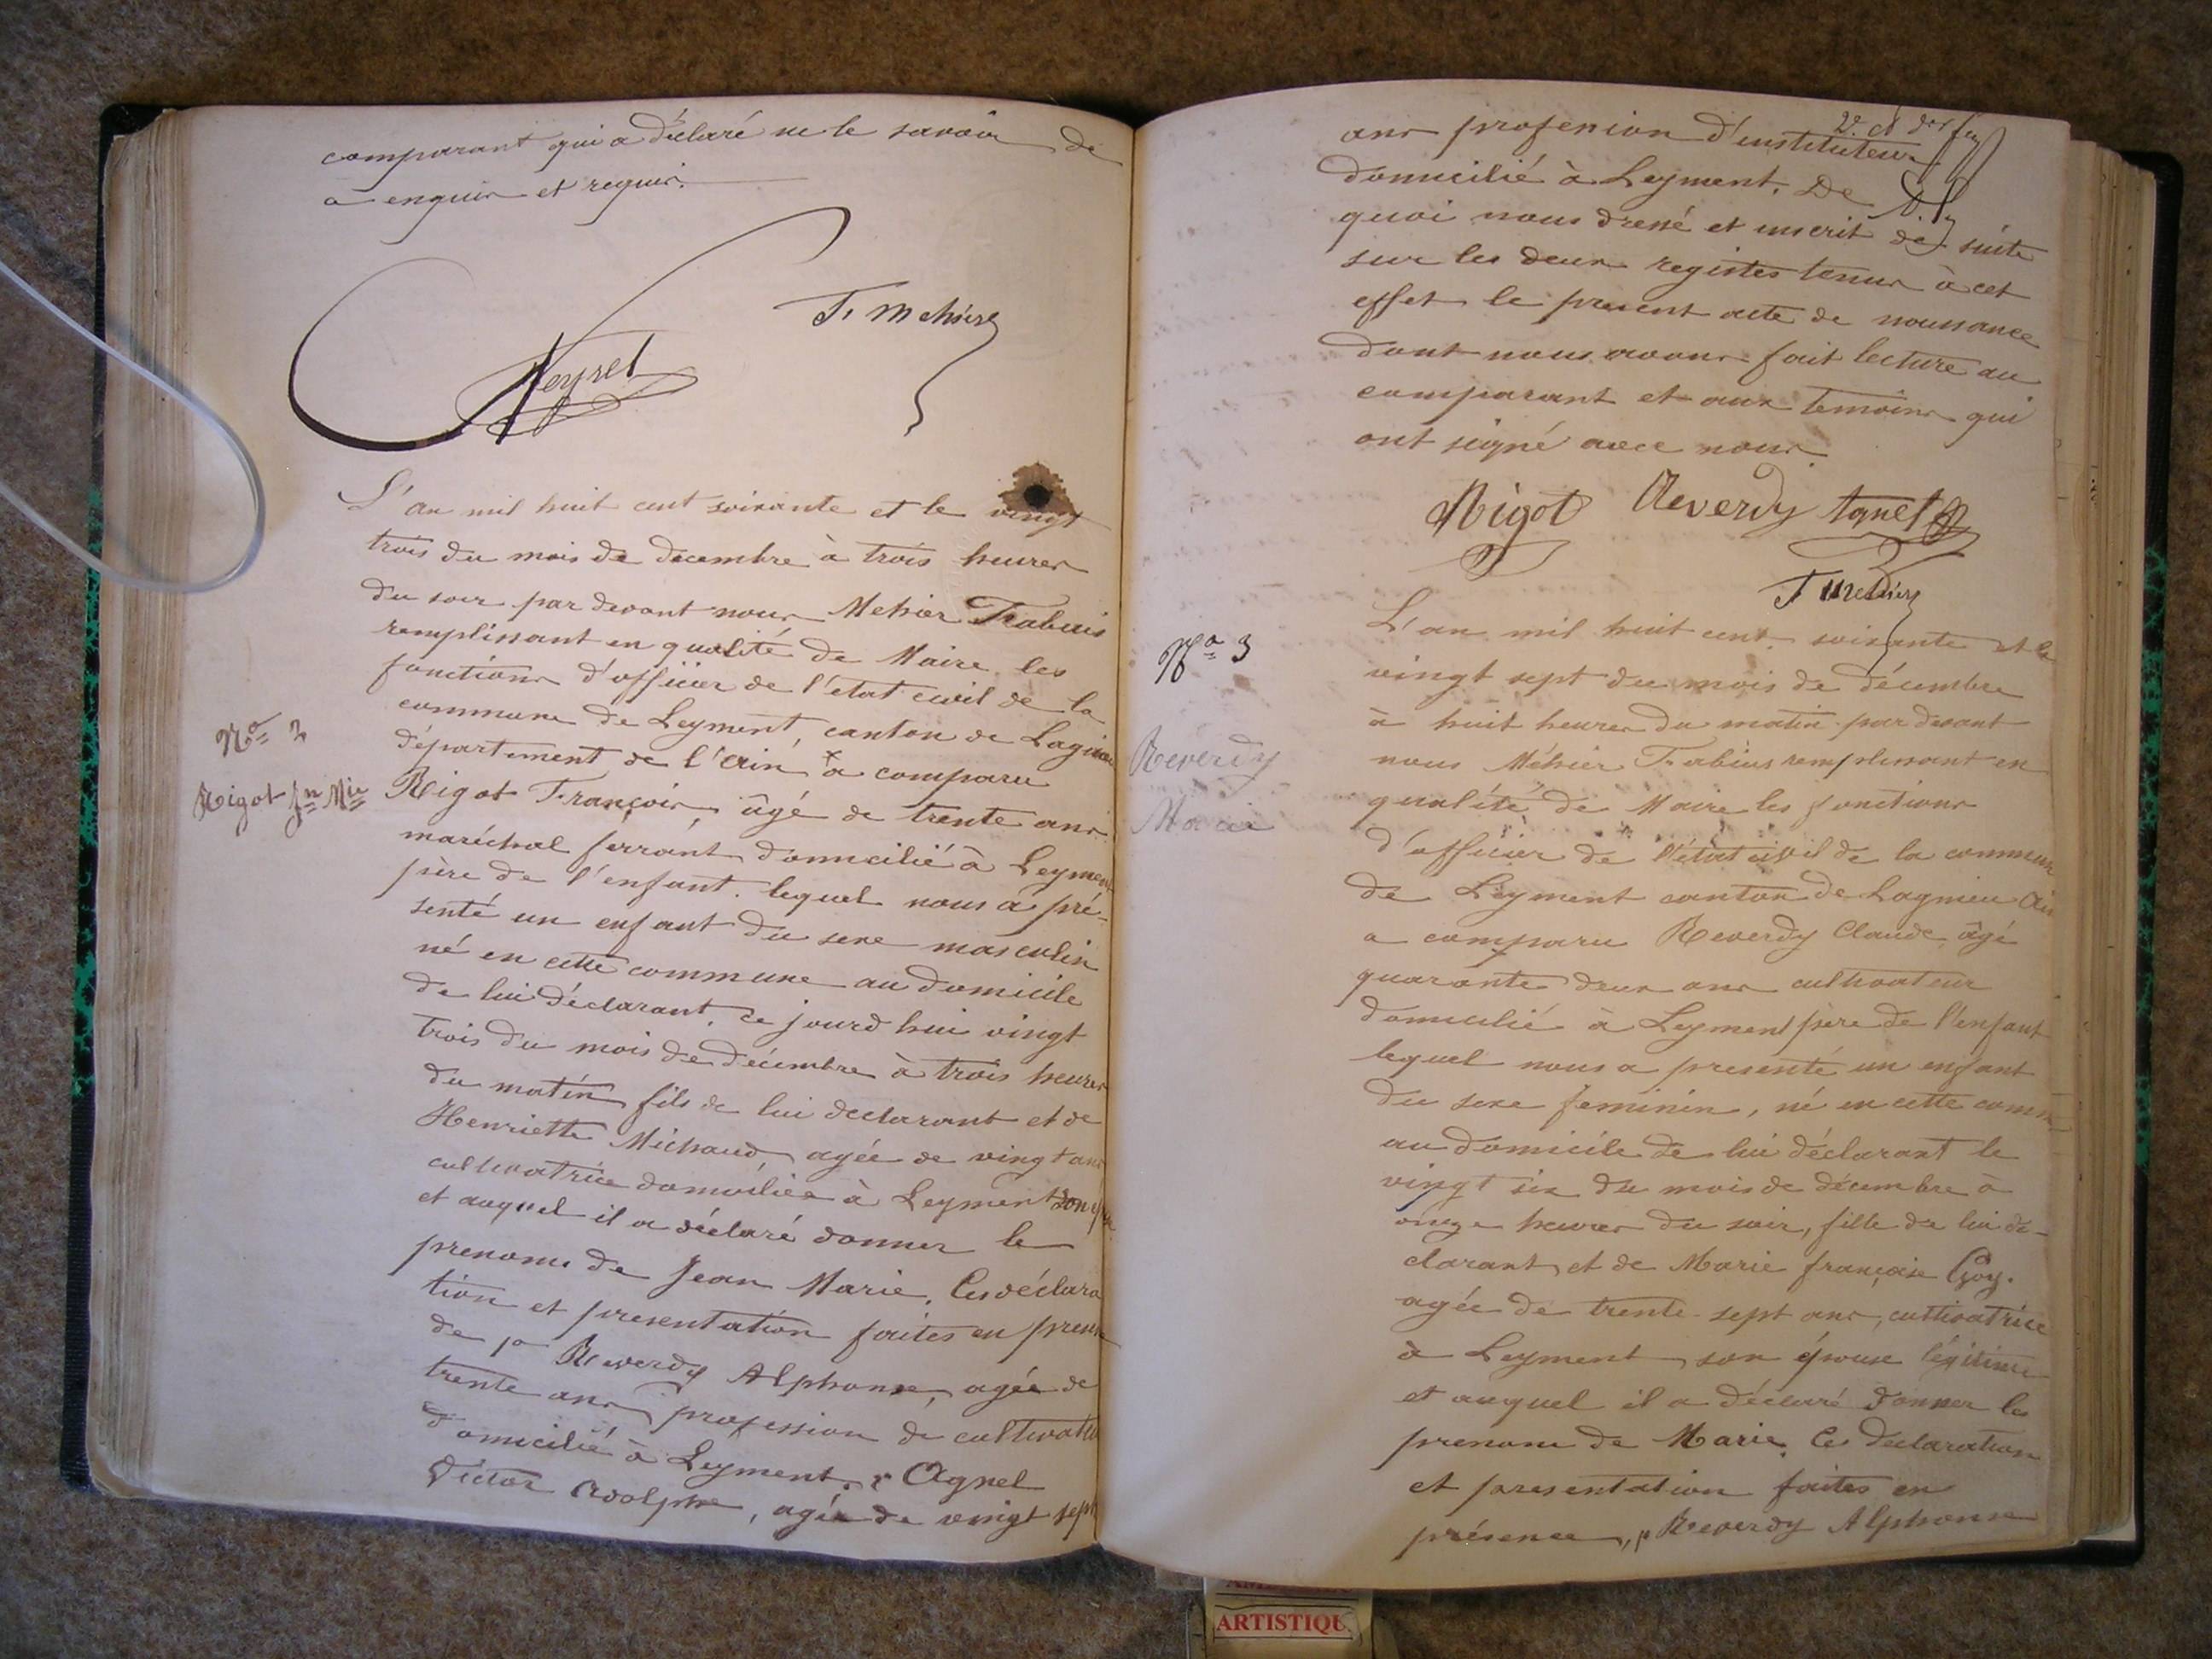 comparant qui a déclaré ne le savoir de
a enquis et requis.
F. Mehier
Neyret
L'an mil huit cent soixante et le vingt
trois du mois de decembre à trois heures
du soir par devant nous Mehier Fabius
remplissant en qualité de Maire les
fonctions d'officier de l'état civil de la
commune de Leyment, canton de Lagnieu
département de l'Ain a comparu
N° 2
Rigot Jn Mie
Rigot François, âgé de trente ans
maréchal ferrant domicilié à Leyment
père de l'enfant. lequel nous a pré-
senté un enfant du sexe masculin
né en cette commune au domicile
de lui déclarant ce jourd'hui vingt
trois du mois de décembre à trois heures
du matin fils de lui declarant et de
Henriette Michaud agée de vingt ans
cultivatrice domiciliée à Leyment son
et auquel il a déclaré donner le
prenoms de Jean Marie. Ces déclara
tion et presentation faites en presen
de 1° Reverdy Alphonse, agée de
trente ans profession de cultivateu
domicilié à Leyment. Agnel
Victor Adolphe, agée de vingt sept
ans profession d'instituteur
domicilié à Leyment. De
quoi nous dressé et inscrit de suite
sur les deux registes tenus à cet
effet le present acte de naissance
dont nous avons fait lecture au
comparant et aux temoins qui
ont signé avec nous
Rigot Reverdy Agnel
F Mehier
N° 3
Reverdy
Marie
L'an mil huit cent soixante et le
vingt sept du mois de décembre
à huit heures du matin par devant
nous Méhier Fabius remplissant en
qualité de Maire les fonctions
d'officier de l'état civil de la commun
de Leyment canton de Lagnieu Ain
a comparu Reverdy Claude âgé
quarante deux ans cultivateur
domicilié à Leyment père de l'enfant
lequel nous a presenté un enfant
du sexe feminin, né en cette comm
au domicile de lui déclarant le
vingt six du mois de décembre à
onze heures du soir, fille de lui dé-
clarant et de Marie françoise Goy.
agée de trente sept ans, cultivatrice
à Leyment son épouse légitime
et auquel il a déclaré donner les
prenoms de Marie. Ces déclaration
et presentation faites en
présence, 1° Reverdy Alphonse
ARTISTIQU